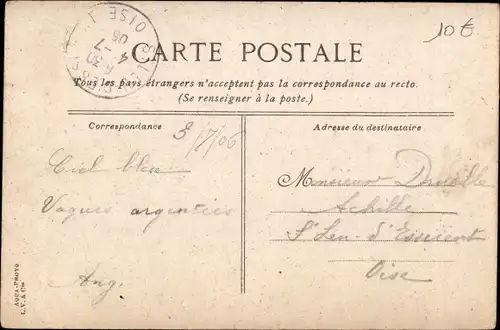 10€
OISE
CARTE POSTALE
Tous les pays étrangers n'acceptent pas la correspondance au recto.
(Se renseigner à la poste.)
Correspondance
3/7/06
Ciel bleu
Vagues argentées
Ang.
Adresse du destinataire
Monsieur
Achille
St Leu-d'Esserent
Oise
AQUA-PHOTO
L.V. & Cie